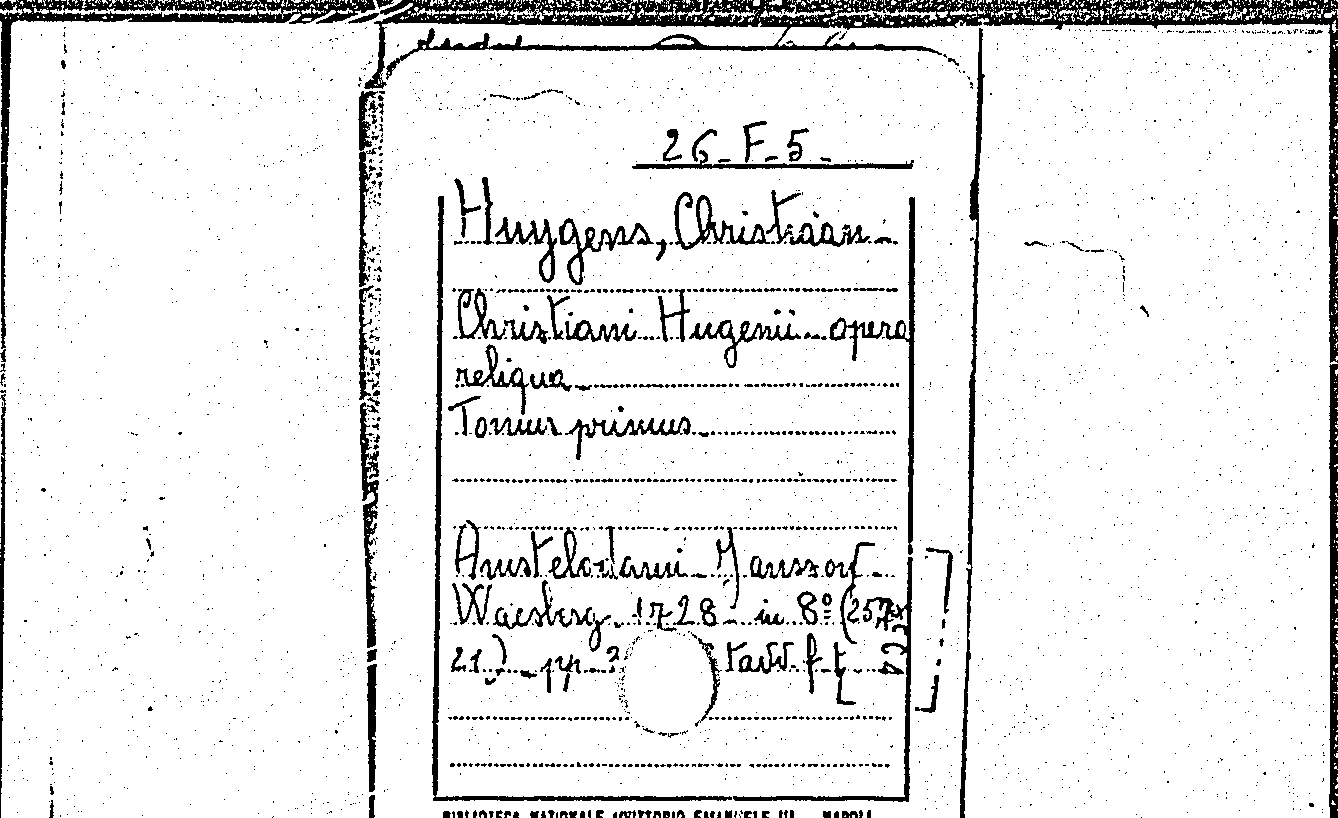 26-F-5-
Huygens, Christiaan -
Christiani Hugenii - opera
reliqua -
Tomus primus -
Amstelodami - Jansson
Waesberg. 1728 - in 8º (25
21) - pp. tavv. f. t.
BIBLIOTECA NATIONALE «VITTORIO EMANUELE III - NAPOLI